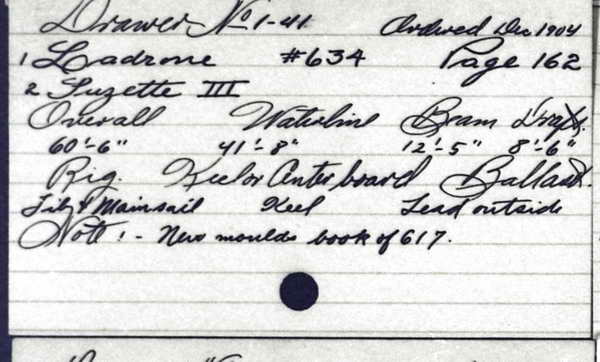 Drawer No 1-41 Ordered Dec 1904
1 Ladrone #634 Page 162
2 Suzette III
Overall Waterline Beam Draft.
60'-6" 41'-8" 12'-5" 8'-6"
Rig. Keel or Center board Ballast.
Jib & Mainsail Keel Lead outside
Note :- New moulds book of 617.